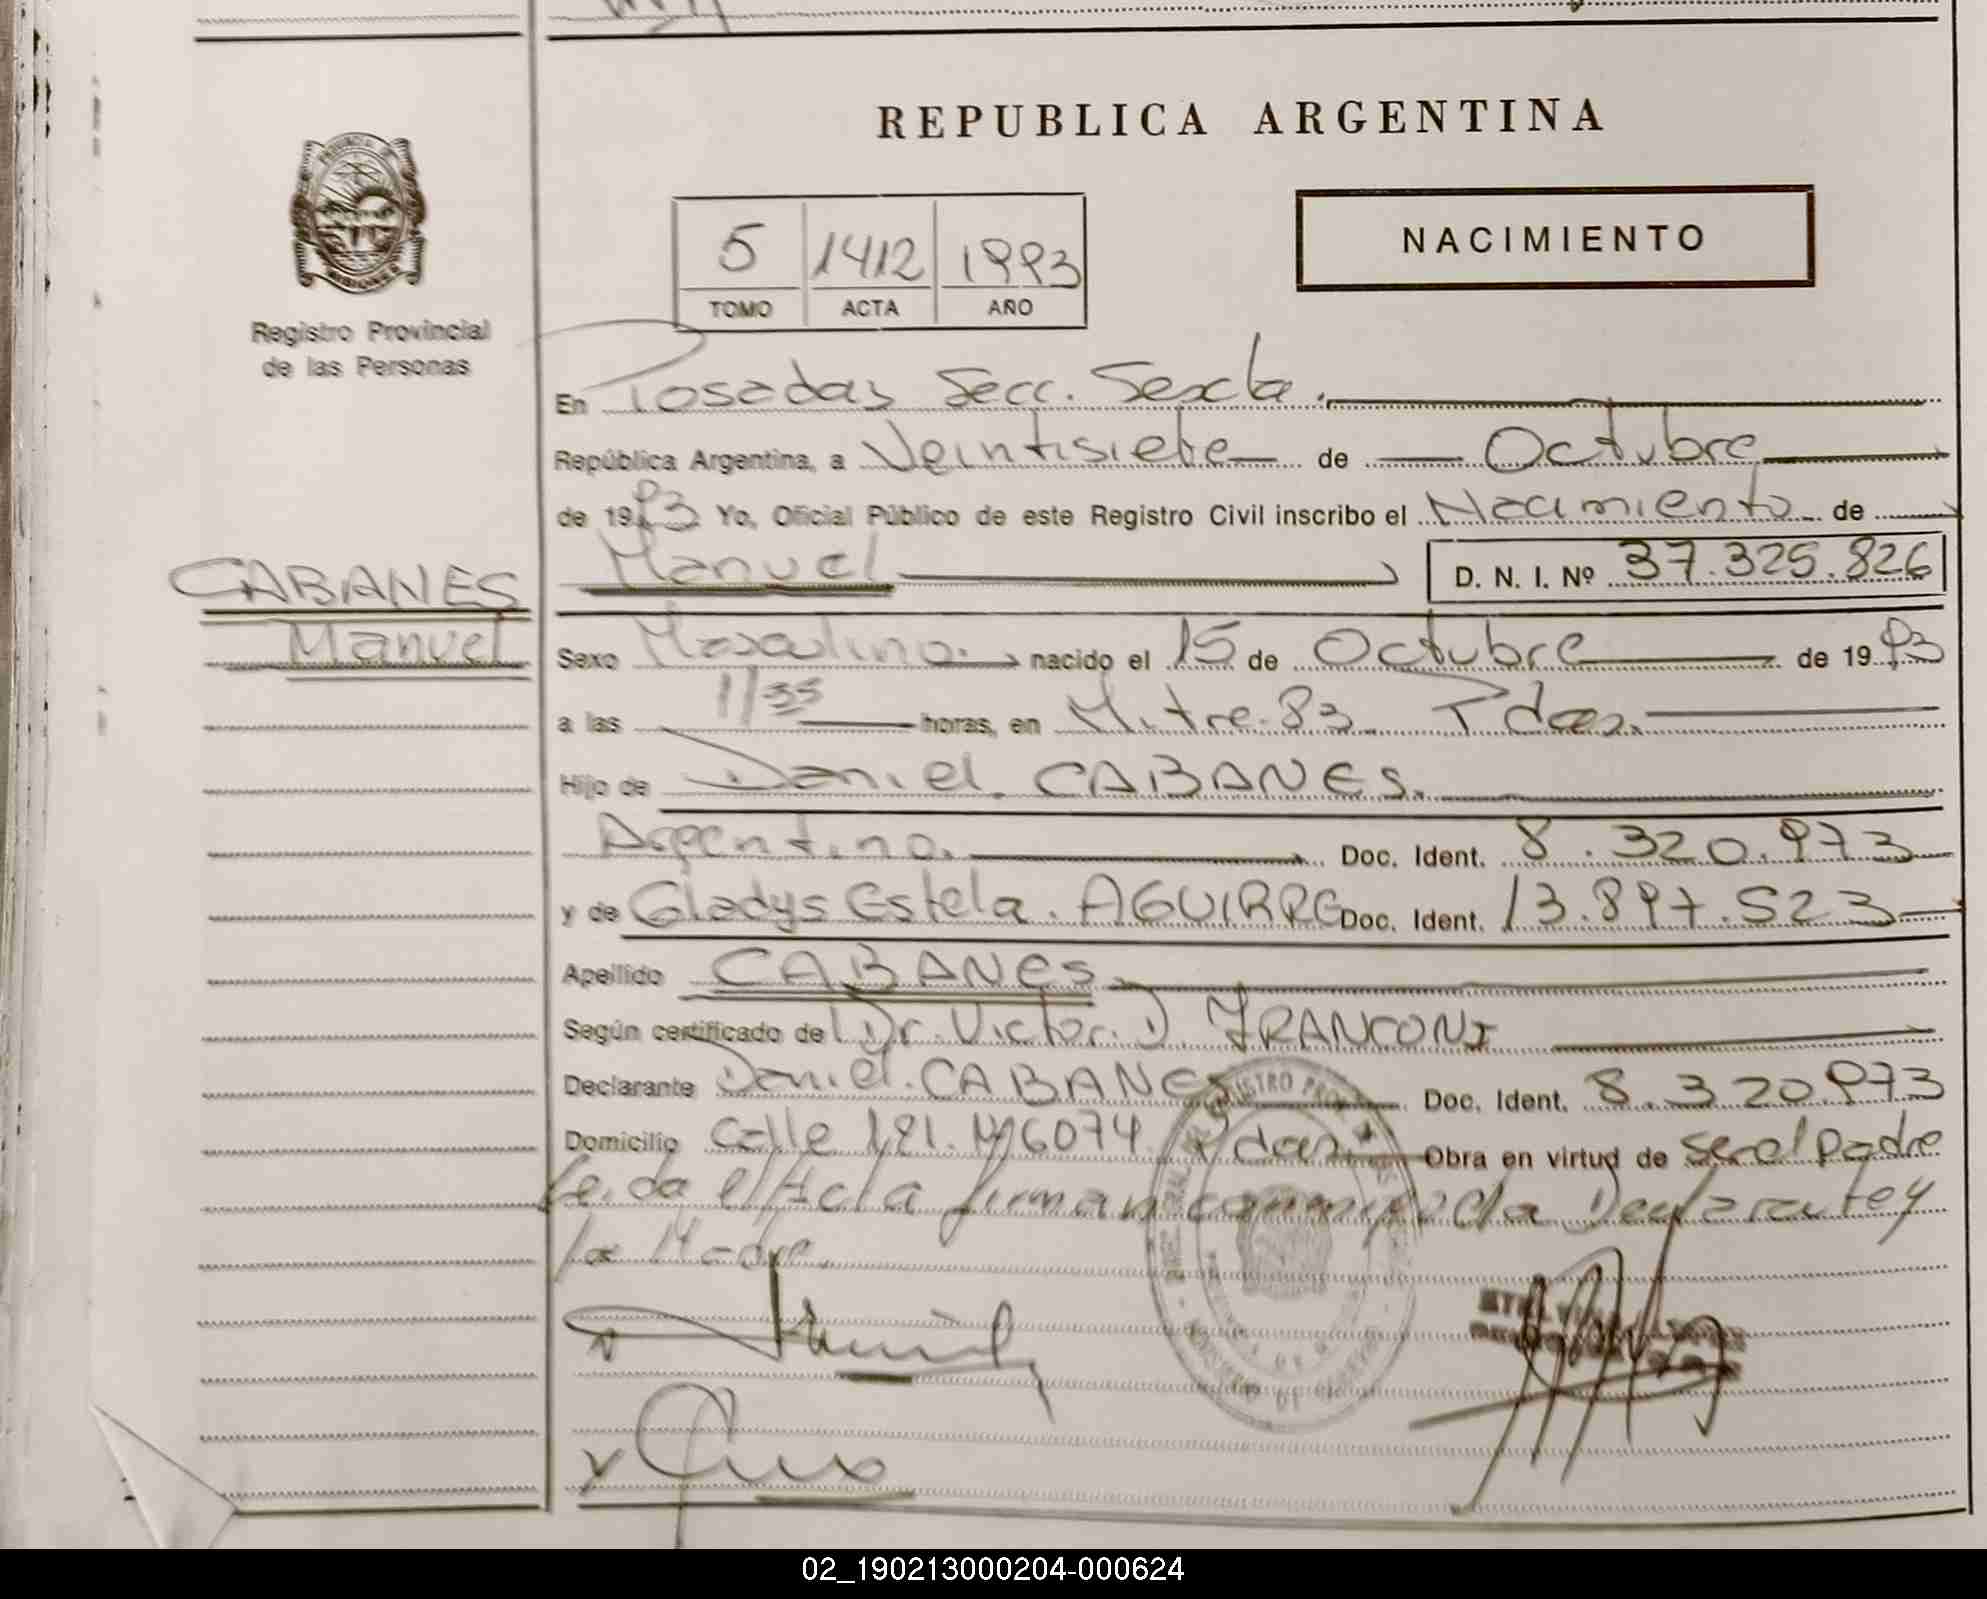 REPUBLICA ARGENTINA
NACIMIENTO
5 1412 1993
TOMO ACTA AÑO
Registro Provincial
de las Personas
En Posadas Secc. Sexta.
República Argentina, a Veintisiete de Octubre
de 1993 Yo, Oficial Público de este Registro Civil inscribo el Nacimiento de
CABANES
Manuel
Manuel D. N. I. Nº 37.325.826
Sexo Masculino. nacido el 15 de Octubre de 1993
a las 1/35 horas, en Mitre. 83. Pdas.
Hijo de Daniel CABANES.
Argentino. Doc. Ident. 8.320.973
y de Gladys Estela. AGUIRRE Doc. Ident. 13.897.523
Apellido CABANES.
Según certificado de Dr. Victor. D. FRANCONI
Declarante Daniel. CABANES Doc. Ident. 8.320.973
Domicilio Calle 121. Nº 6074 Pdas. Obra en virtud de ser el padre
Leida el Acta firman conmigo el Declarante y
la Madre.
02_190213000204-000624